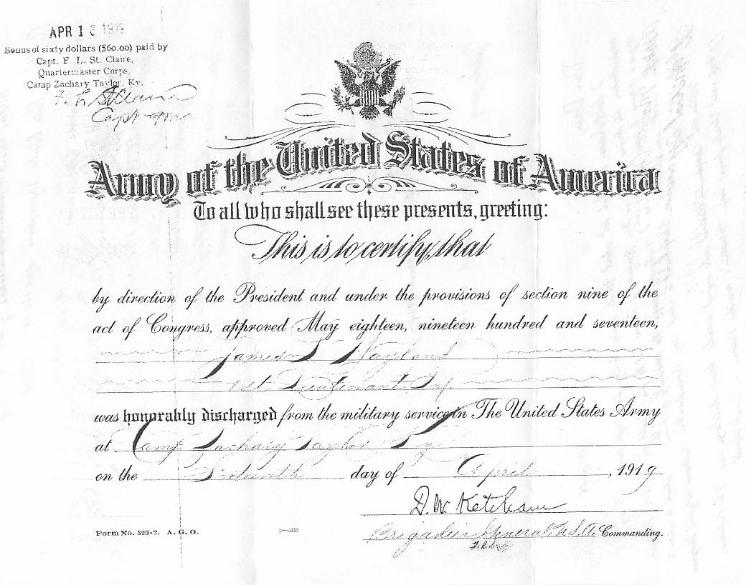 APR 1 1919
Bonus of sixty dollars ($60.00) paid by
Capt. F. L. St. Claire,
Quartermaster Corps,
Camp Zachary Taylor, Ky.
F. L. St. Claire
Capt QMC
Army of the United States of America
To all who shall see these presents, greeting:
This is to certify that
by direction of the President and under the provisions of section nine of the
act of Congress, approved May eighteen, nineteen hundred and seventeen,
James
1st Lieutenant Inf
was honorably discharged from the military service in The United States Army
at Camp Zachary Taylor Ky
on the day of April, 1919
D. W. Ketcham
Brigadier General, U.S.A. Commanding.
Form No. 525-2. A. G. O.